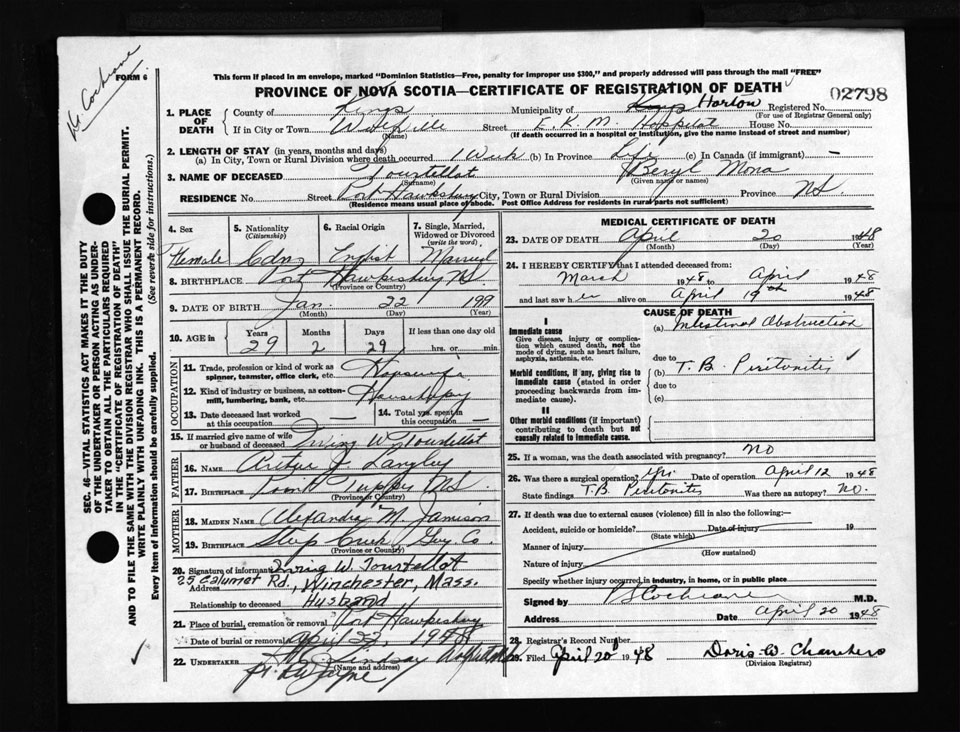 FORM 6
Cochrane
This form if placed in an envelope, marked "Dominion Statistics—Free, penalty for improper use $300," and properly addressed will pass through the mail "FREE"
PROVINCE OF NOVA SCOTIA—CERTIFICATE OF REGISTRATION OF DEATH
02798
1. PLACE OF DEATH County of Kings Municipality of Kings Horton Registered No.
(For use of Registrar General only)
If in City or Town Wolfville Street E. K. M. Hospital House No.
(Name) (If death occurred in a hospital or institution, give the name instead of street and number)
2. LENGTH OF STAY (in years, months and days)
(a) In City, Town or Rural Division where death occurred 1 Week (b) In Province Life (c) In Canada (if immigrant) —
3. NAME OF DECEASED Tourtellot Beryl Mona
(Surname) (Given name or names)
RESIDENCE No. Street Port Hawksbury City, Town or Rural Division Province N.S.
(Residence means usual place of abode. Post Office Address for residents in rural parts not sufficient)
4. Sex Female
5. Nationality (Citizenship) Cdn
6. Racial Origin English
7. Single, Married, Widowed or Divorced (write the word) Married
8. BIRTHPLACE Port Hawkesbury N.S.
(Province or Country)
9. DATE OF BIRTH Jan. 22 199
(Month) (Day) (Year)
10. AGE in Years 29 Months 2 Days 29 If less than one day old
hrs. or min.
OCCUPATION
11. Trade, profession or kind of work as spinner, teamster, office clerk, etc. Housewife
12. Kind of industry or business, as cotton-mill, lumbering, bank, etc.
13. Date deceased last worked at this occupation
14. Total yrs. spent in this occupation
15. If married give name of wife or husband of deceased Irving W. Tourtellot
FATHER
16. NAME Arthur J. Langley
17. BIRTHPLACE Point Tupper N.S.
(Province or Country)
MOTHER
18. MAIDEN NAME Alexandria M. Jamison
19. BIRTHPLACE Creek Guy. Co.
(Province or Country)
20. Signature of informant Irving W. Tourtellot
Address 25 Calumet Rd., Winchester, Mass.
Relationship to deceased Husband
21. Place of burial, cremation or removal Port Hawkesbury
Date of burial or removal April 22, 1948
22. UNDERTAKER Lindsay
(Name and address)
MEDICAL CERTIFICATE OF DEATH
23. DATE OF DEATH April 20 1948
(Month) (Day) (Year)
24. I HEREBY CERTIFY that I attended deceased from:
March 1948 to April 1948
and last saw her alive on April 19th 1948
CAUSE OF DEATH
I
Immediate cause
Give disease, injury or complication which caused death, not the mode of dying, such as heart failure, asphyxia, asthenia, etc.
(a) Intestinal Obstruction
due to
Morbid conditions, if any, giving rise to immediate cause (stated in order proceeding backwards from immediate cause)
(b) T. B. Peritonitis
due to
(c)
II
Other morbid conditions (if important) contributing to death but not causally related to immediate cause.
25. If a woman, was the death associated with pregnancy? NO
26. Was there a surgical operation? Yes Date of operation April 12 1948
State findings T.B. Peritonitis Was there an autopsy? NO.
27. If death was due to external causes (violence) fill in also the following:—
Accident, suicide or homicide? Date of injury 19
(State which)
Manner of injury
(How sustained)
Nature of injury
Specify whether injury occurred in industry, in home, or in public place
Signed by Cochrane M.D.
Address Date April 20 1948
28. Registrar's Record Number
29. Filed April 20 1948 Doris W. Chambers
(Division Registrar)
SEC. 46—VITAL STATISTICS ACT MAKES IT THE DUTY
OF THE UNDERTAKER OR PERSON ACTING AS UNDER-
TAKER TO OBTAIN ALL THE PARTICULARS REQUIRED
IN THE "CERTIFICATE OF REGISTRATION OF DEATH"
AND TO FILE THE SAME WITH THE DIVISION REGISTRAR WHO SHALL ISSUE THE BURIAL PERMIT.
WRITE PLAINLY WITH UNFADING INK. THIS IS A PERMANENT RECORD.
Every item of information should be carefully supplied. (See reverse side for instructions.)